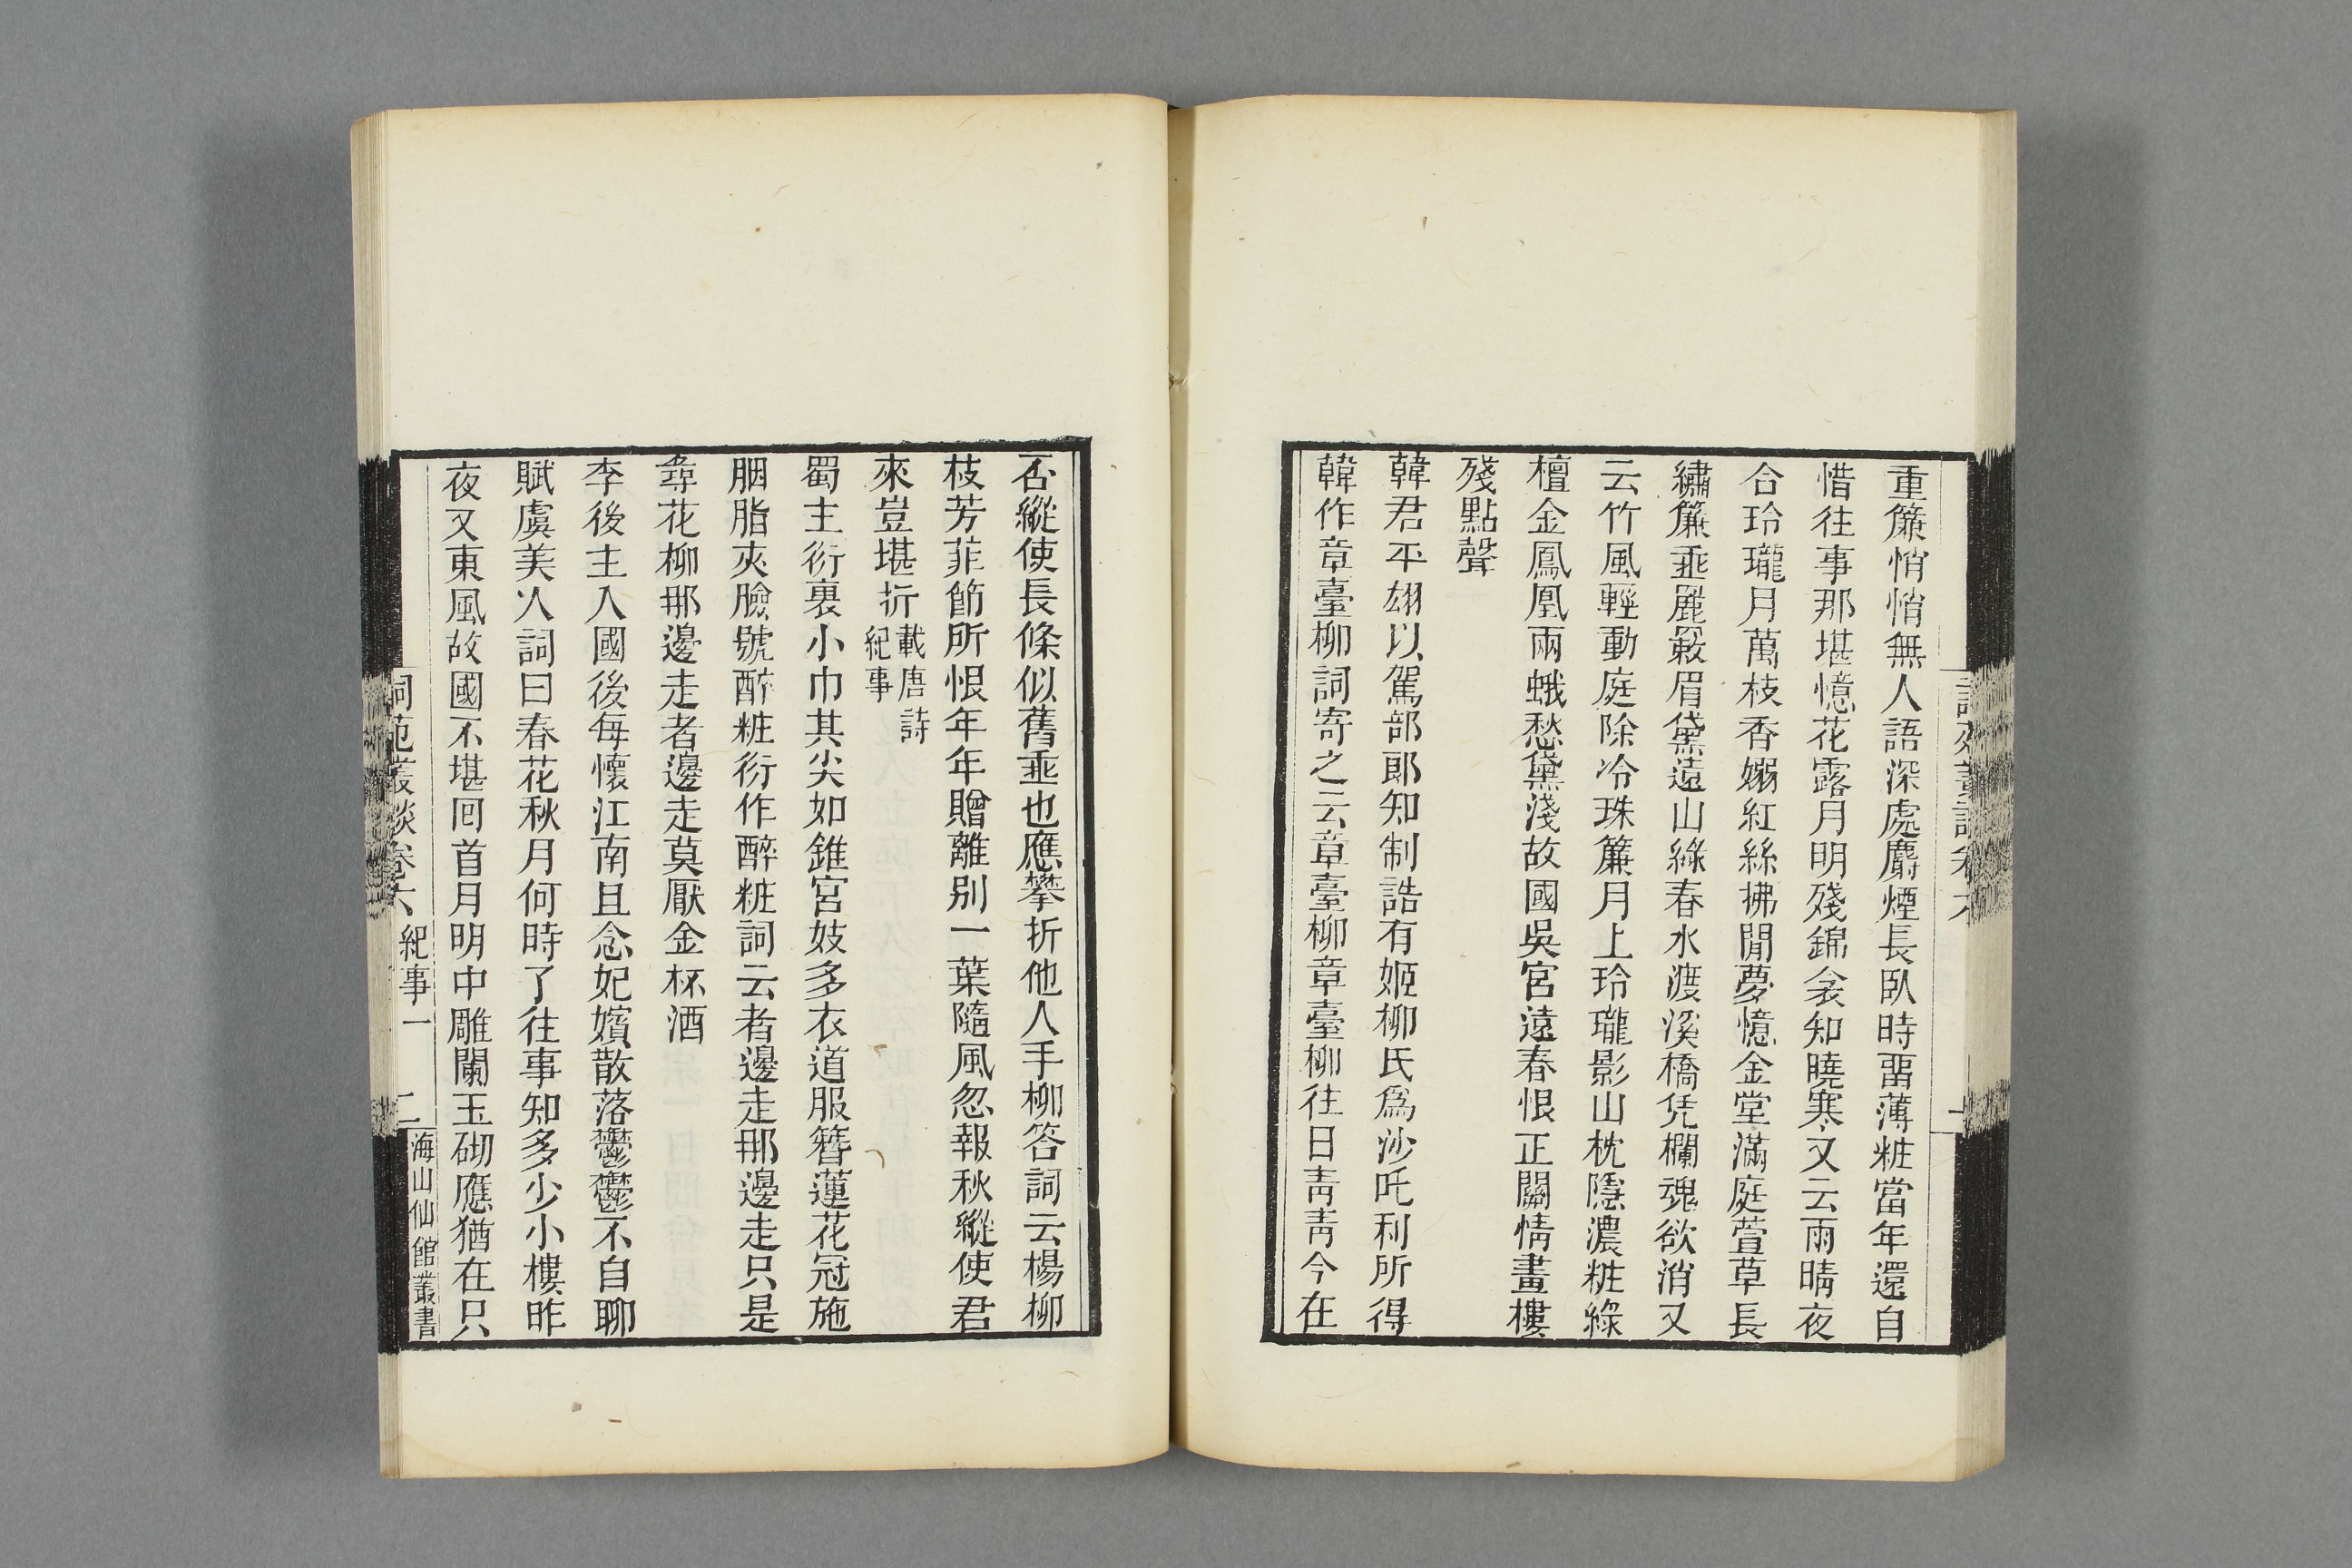 重簾悄悄無人語深處麝煙長臥時畱薄粧當年還自
惜往事那堪憶花露月明殘錦衾知曉寒又云雨晴夜
合玲瓏月萬枝香嫋紅絲拂閒夢憶金堂滿庭萱草長
繡簾垂㔫簌眉黛遠山綠春水渡溪橋凭欄魂欲消又
云竹風輕動庭除冷珠簾月上玲瓏影山枕隱濃粧綠
檀金鳳凰兩蛾愁黛淺故國吳宮遠春恨正關情畫樓
殘點聲
韓君平翃以駕部郎知制誥有姬柳氏爲沙吒利所得
韓作章臺柳詞寄之云章臺柳章臺柳往日靑靑今在
否縱使長條似舊垂也應攀折他人手柳答詞云楊柳
枝芳菲節所恨年年贈離别一葉隨風忽報秋縱使君
來豈堪折載唐詩紀事
蜀主衍裹小巾其尖如錐宮妓多衣道服簪蓮花冠施
胭脂夾臉號醉粧衍作醉粧詞云者邊走那邊走只是
尋花柳那邊走者邊走莫厭金杯酒
李後主入國後每懷江南且念妃嬪散落鬱鬱不自聊
賦虞美人詞曰春花秋月何時了往事知多少小樓昨
夜又東風故國不堪囘首月明中雕闌玉砌應猶在只
詞苑叢談卷六 紀事一 二 海山仙館叢書